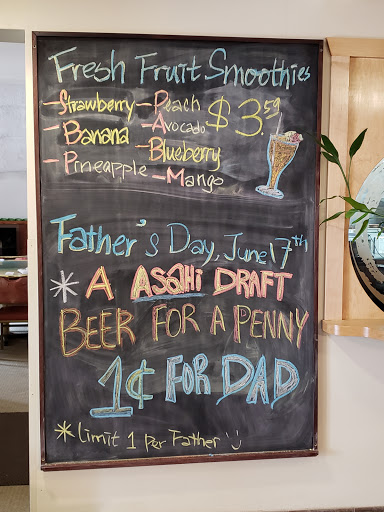 Fresh Fruit Smoothies
- Strawberry - Peach $3.59
- Banana - Avocado
- Pineapple - Blueberry
- Mango
Father's Day, June 17th
* A ASAHI DRAFT
BEER FOR A PENNY
1¢ FOR DAD
* Limit 1 Per Father :)